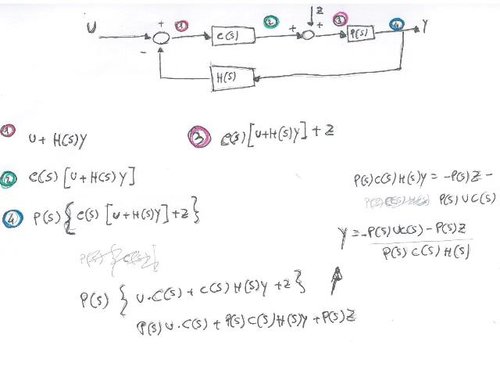 U + - ① C(s) ② + Z + ③ P(s) ④ Y
H(s)
① U + H(s)Y
③ C(s) [U+H(s)Y] + Z
② C(s) [U + H(s)Y]
④ P(s) { C(s) [U + H(s)Y] + Z }
P(s)C(s)H(s)Y = -P(s)Z -
P(s)UC(s)
Y = -P(s)UC(s) - P(s)Z
P(s)C(s)H(s)
P(s) { U·C(s) + C(s)H(s)Y + Z }
P(s)U·C(s) + P(s)C(s)H(s)Y + P(s)Z